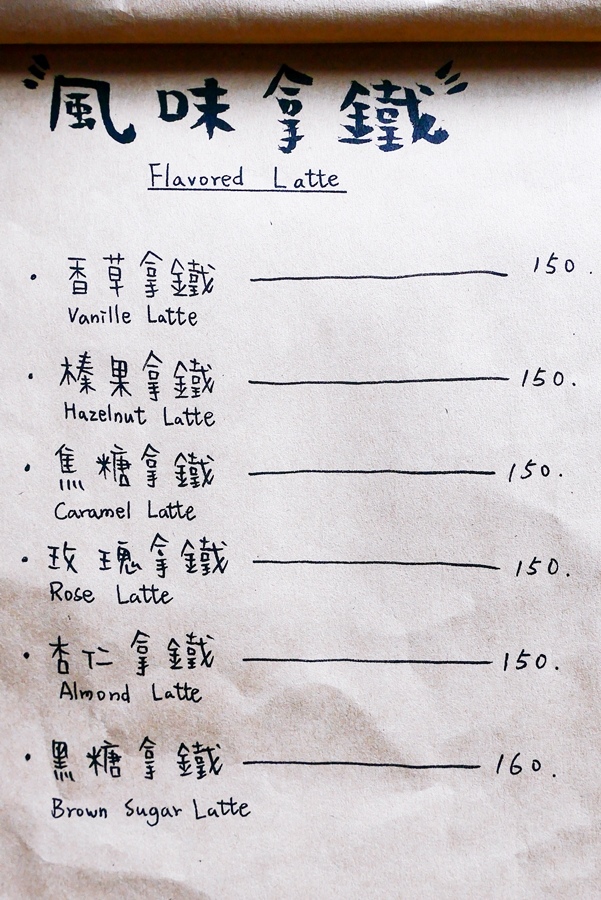 "風味拿鐵"
Flavored Latte
· 香草拿鐵 —— 150.
Vanille Latte
· 榛果拿鐵 —— 150.
Hazelnut Latte
· 焦糖拿鐵 —— 150.
Caramel Latte
· 玫瑰拿鐵 —— 150.
Rose Latte
· 杏仁拿鐵 —— 150.
Almond Latte
· 黑糖拿鐵 —— 160.
Brown Sugar Latte